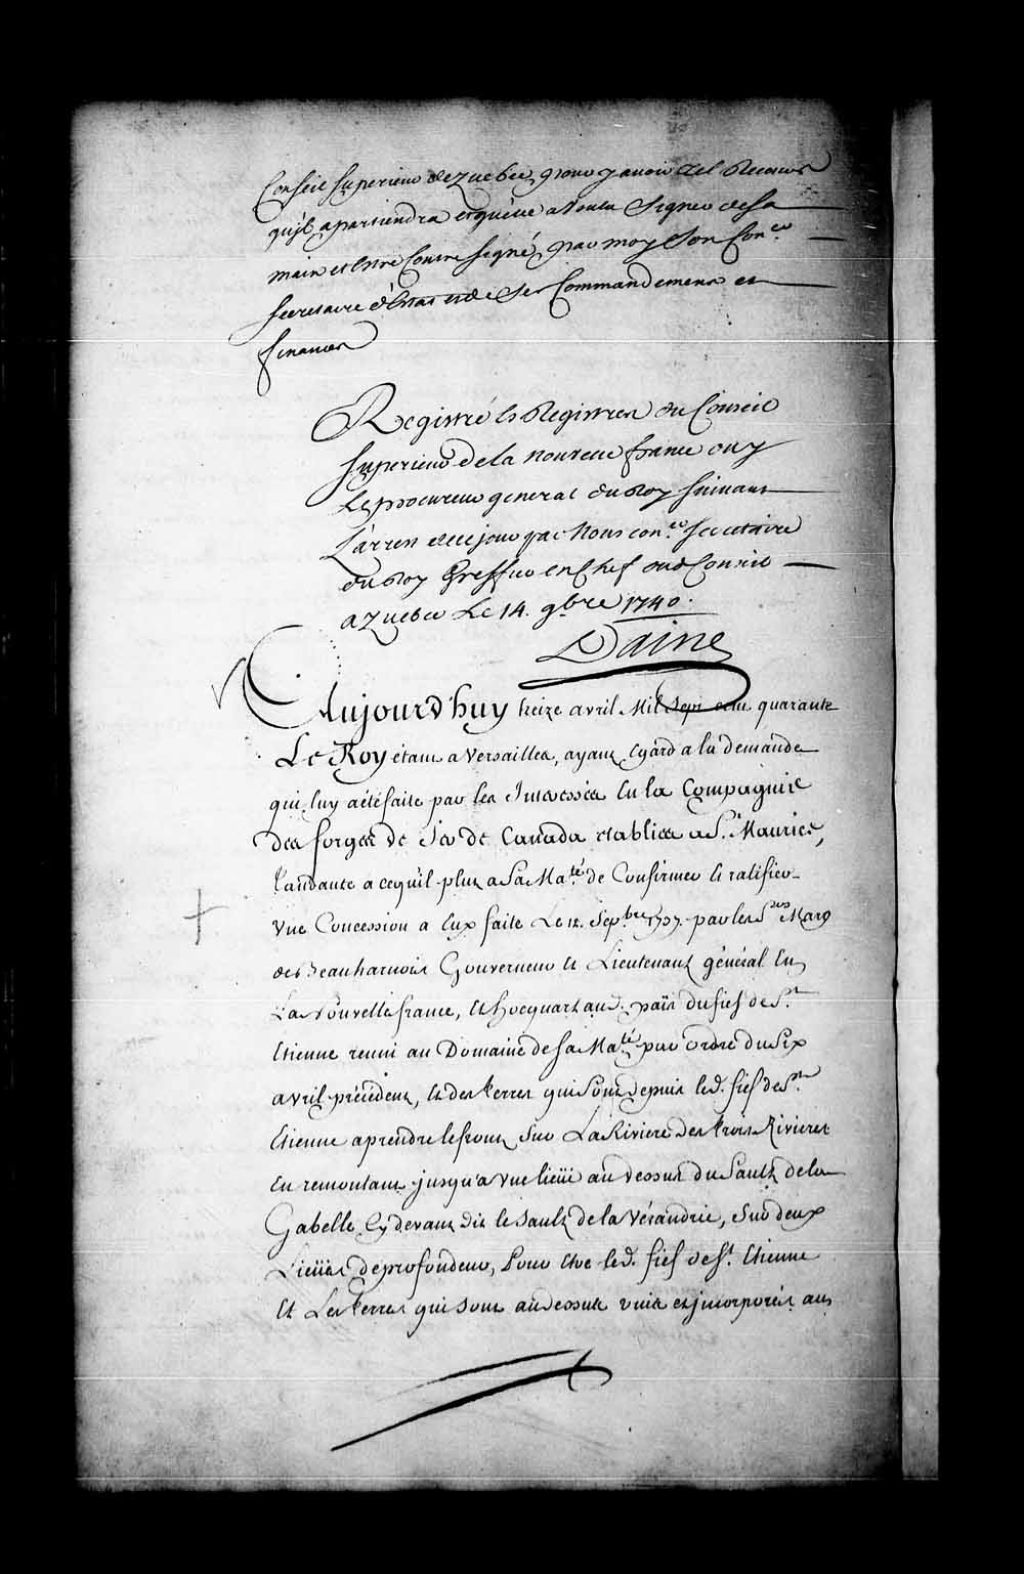 Conseil Superieur de Quebec, pour y avoir tel Recours
qu'jl apartiendra et qu'elle a voulu Signer de sa
main et Estre Contresigné, par moy Son Con.er
Secretaire d'Estat et de Ses Commandemens et
finances
Registré és Registres du Conseil
Superieur de la nouvelle france ouy
Le procureur general du Roy suivant
L'arrest de ce jour par Nous con.er secretaire
du Roy Greffier en Chef aud Conseil
a Quebec Le 14. 9bre 1740.
Daine
Aujourd'huy treize avril Mil Sept cent quarante
Le Roy étant a Versailles, ayant Egard a la demande
qui luy a été faite par les Interessés En la Compagnie
des forges de fer de Canada etablies a S.t Maurice,
tandante a ce qu'il plut a Sa Ma.té de Confirmer et ratifier
une Concession a Eux faite Le 12. Sep.bre 1737. par les S.rs Marq
de Beauharnois Gouverneur et Lieutenant général En
La Nouvelle france, et hocquart aud. païs du fief de S.t
Etienne reuni au Domaine de Sa Ma.té par ordre du Six
avril précédent, et des terres qui sont depuis led. fief de S.t
Etienne a prendre le front Sur La Riviere des trois Rivieres
En remontant jusqu'a une lieüe au dessus du Sault de la
Gabelle, Cy devant dit le Sault de la Vérandrie, Sur deux
Lieües de profondeur, Pour Etre led. fief de S.t Etienne
Et Les terres qui sont au dessus unis et jncorporés aux